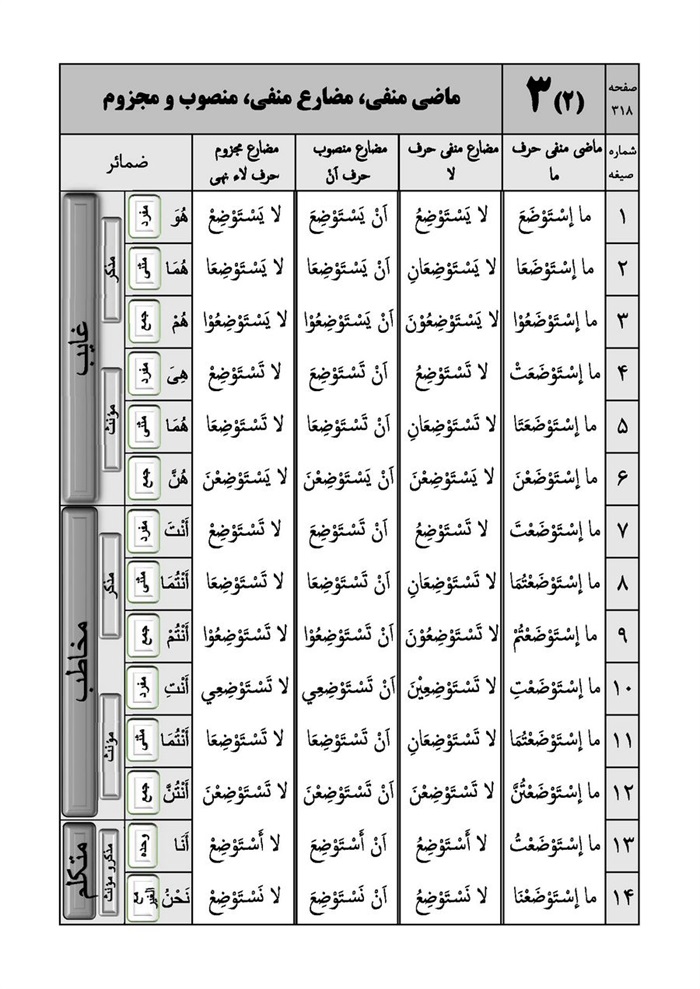 صفحه ۳۱۸ (۲) ۳ ماضی منفی، مضارع منفی، منصوب و مجزوم
شماره صیغه | ماضی منفی حرف ما | مضارع منفی حرف لا | مضارع منصوب حرف اَنْ | مضارع مجزوم حرف لاء نهی | ضمائر
۱ ما إسْتَوْضَعَ لا یَسْتَوْضِعُ اَنْ یَسْتَوْضِعَ لا یَسْتَوْضِعْ هُوَ مفرد
۲ ما إسْتَوْضَعَا لا یَسْتَوْضِعَانِ اَنْ یَسْتَوْضِعَا لا یَسْتَوْضِعَا هُمَا مثنی
۳ ما إسْتَوْضَعُوْا لا یَسْتَوْضِعُوْنَ اَنْ یَسْتَوْضِعُوْا لا یَسْتَوْضِعُوْا هُمْ جمع
مذکر
۴ ما إسْتَوْضَعَتْ لا تَسْتَوْضِعُ اَنْ تَسْتَوْضِعَ لا تَسْتَوْضِعْ هِیَ مفرد
۵ ما إسْتَوْضَعَتَا لا تَسْتَوْضِعَانِ اَنْ تَسْتَوْضِعَا لا تَسْتَوْضِعَا هُمَا مثنی
۶ ما إسْتَوْضَعْنَ لا یَسْتَوْضِعْنَ اَنْ یَسْتَوْضِعْنَ لا یَسْتَوْضِعْنَ هُنَّ جمع
مؤنث
غایب
۷ ما إسْتَوْضَعْتَ لا تَسْتَوْضِعُ اَنْ تَسْتَوْضِعَ لا تَسْتَوْضِعْ أَنْتَ مفرد
۸ ما إسْتَوْضَعْتُمَا لا تَسْتَوْضِعَانِ اَنْ تَسْتَوْضِعَا لا تَسْتَوْضِعَا أَنْتُمَا مثنی
۹ ما إسْتَوْضَعْتُمْ لا تَسْتَوْضِعُوْنَ اَنْ تَسْتَوْضِعُوْا لا تَسْتَوْضِعُوْا أَنْتُمْ جمع
مذکر
۱۰ ما إسْتَوْضَعْتِ لا تَسْتَوْضِعِیْنَ اَنْ تَسْتَوْضِعِي لا تَسْتَوْضِعِي أَنْتِ مفرد
۱۱ ما إسْتَوْضَعْتُمَا لا تَسْتَوْضِعَانِ اَنْ تَسْتَوْضِعَا لا تَسْتَوْضِعَا أَنْتُمَا مثنی
۱۲ ما إسْتَوْضَعْتُنَّ لا تَسْتَوْضِعْنَ اَنْ تَسْتَوْضِعْنَ لا تَسْتَوْضِعْنَ أَنْتُنَّ جمع
مؤنث
مخاطب
۱۳ ما إسْتَوْضَعْتُ لا أَسْتَوْضِعُ اَنْ أَسْتَوْضِعَ لا أَسْتَوْضِعْ أَنَا وحده
۱۴ ما إسْتَوْضَعْنَا لا نَسْتَوْضِعُ اَنْ نَسْتَوْضِعَ لا نَسْتَوْضِعْ نَحْنُ مع الغیر
مذکر و مؤنث
متکلم